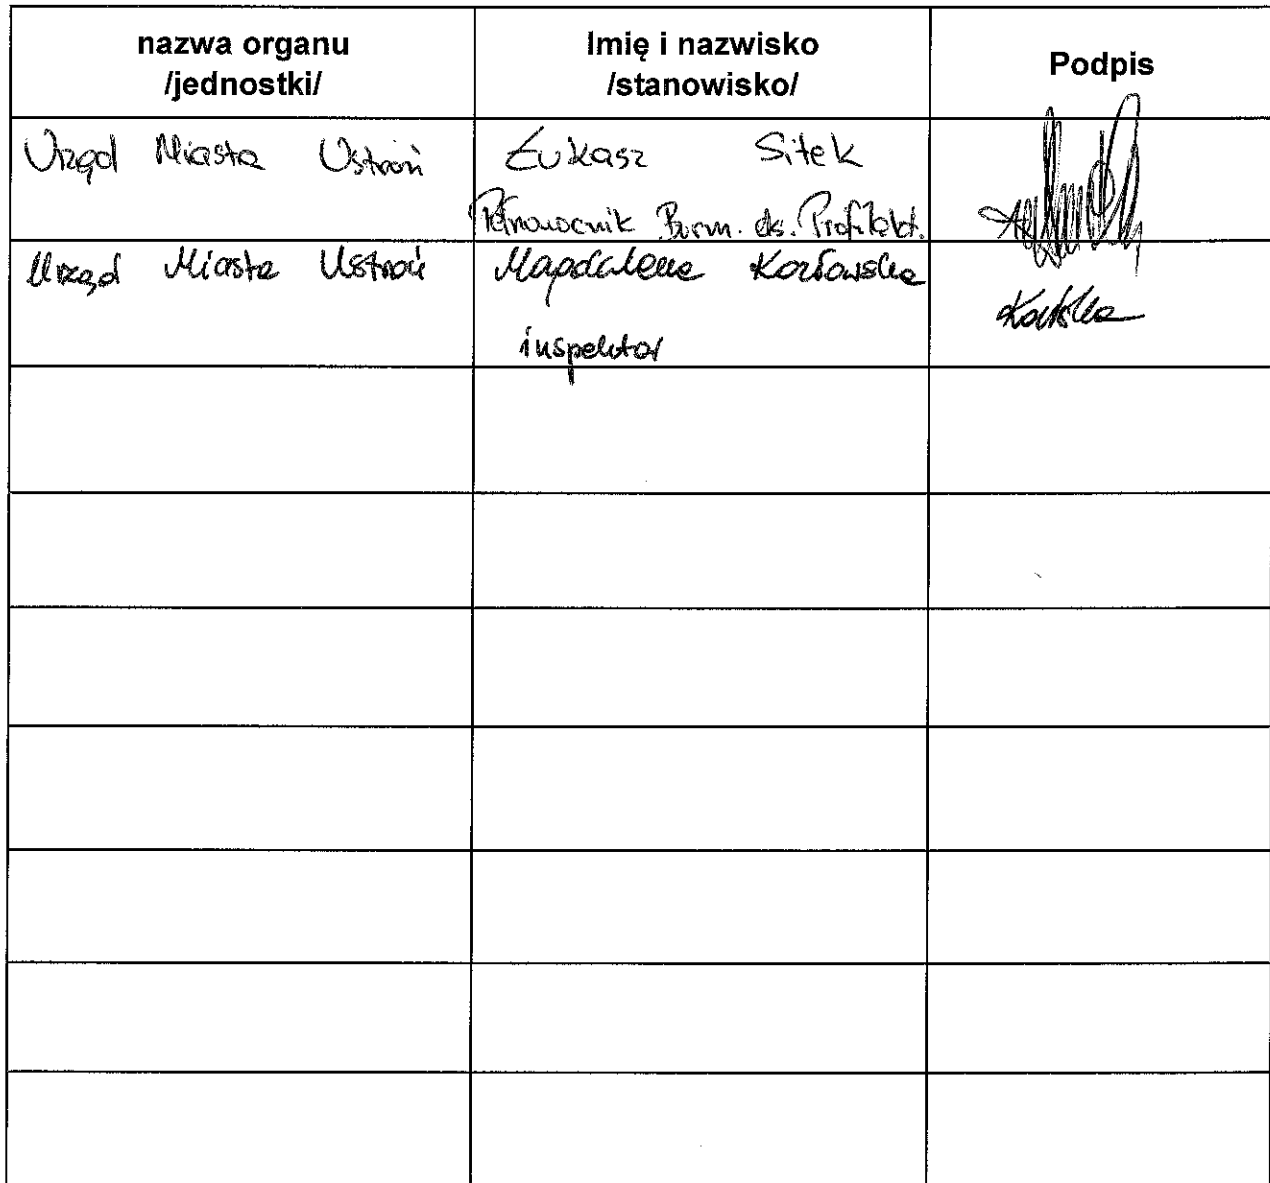 nazwa organu
/jednostki/
Imię i nazwisko
/stanowisko/
Podpis
Urząd Miasta Ustroń
Łukasz Sitek
Pełnomocnik Burm. ds. Profilakt.
Urząd Miasta Ustroń
Magdalena Kozłowska
inspektor